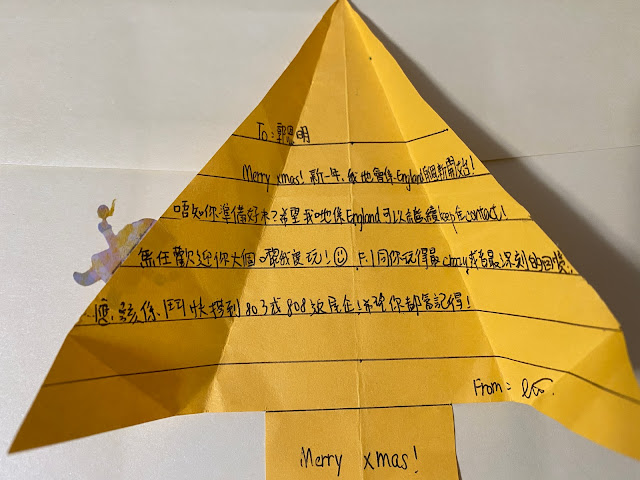 To: 郭明
Merry xmas! 新一年,我地會係England有個新開始!
唔知你準備好未?希望我哋係England可以繼續keep contact!
歡迎你大個嚟我度玩!☺ F.1同你玩得最crazy或者最深刻的回憶,
應該係鬥快搭到803或808返屋企!希望你都記得!
From:
Merry xmas!